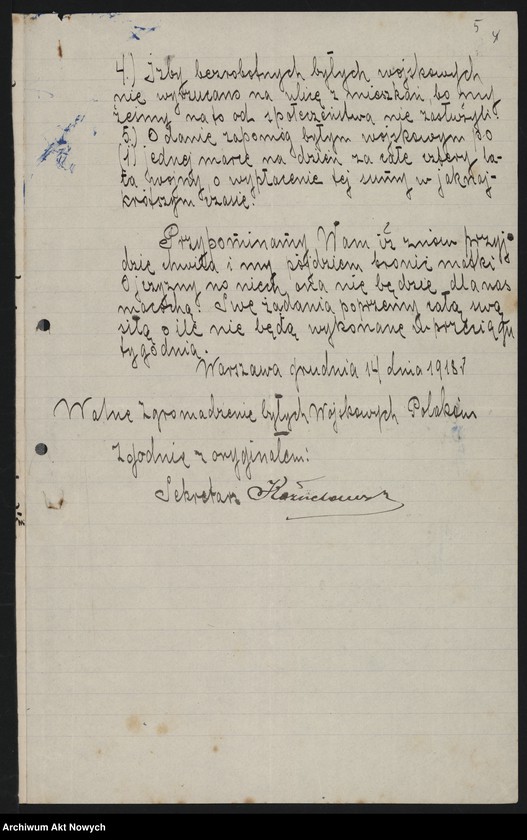 5
4
4.) Iżby bezrobotnych byłych wojskowych
nie wyrzucano na ulicę z mieszkań, bo my
żeśmy na to od społeczeństwa nie zasłużyli!
5.) O danie zapomóg byłym wojskowym po
(1) jednej marce na dzień za całe cztery la-
ta wojny, o wypłacenie tej sumy w jaknaj-
krótszym czasie!
Przypominamy Wam iż znów przyj-
dzie chwila i my pójdziem bronić matki
Ojczyzny, no niech ona nie będzie dla nas
macochą! Swe żądania poprzemy całą swą
siłą o ile nie będą wykonane w przeciągu
tygodnia.
Warszawa grudnia 14 dnia 1918 r
Walne Zgromadzenie byłych Wojskowych Polaków
Zgodnie z oryginałem:
Sekretarz
Archiwum Akt Nowych